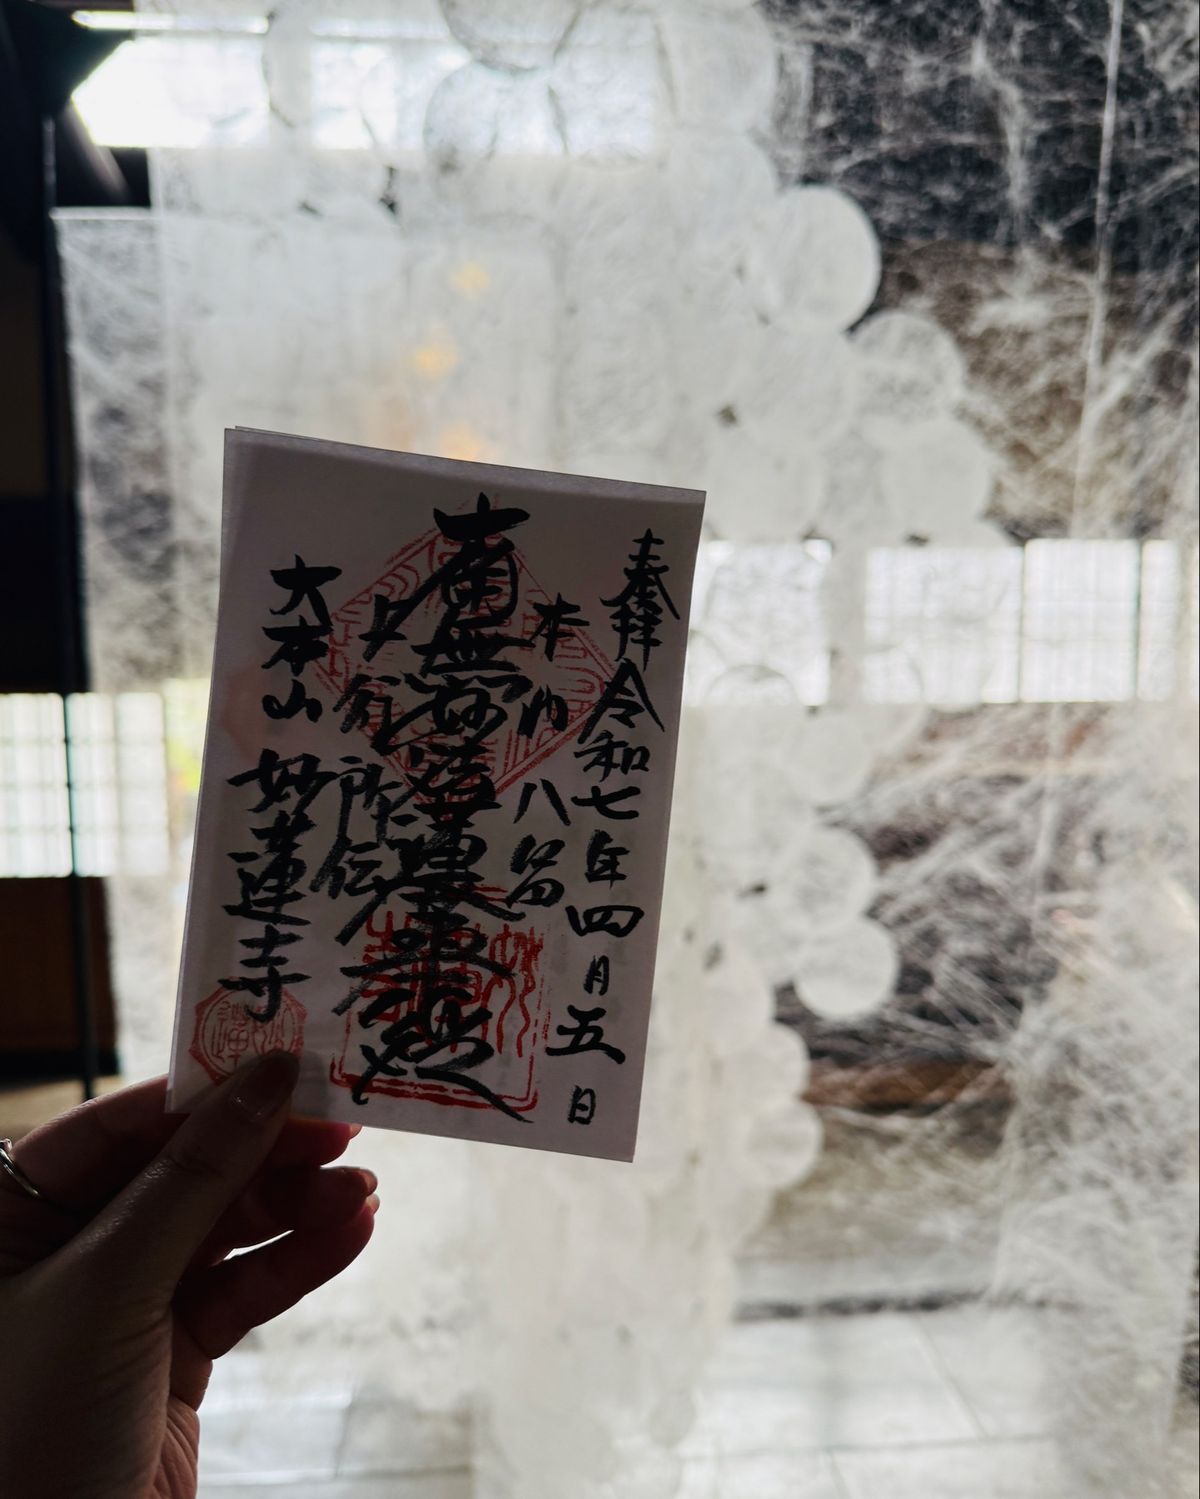 奉拝 令和七年四月五日
本門八品
南無妙法蓮華経
上行所伝
大本山 妙蓮寺